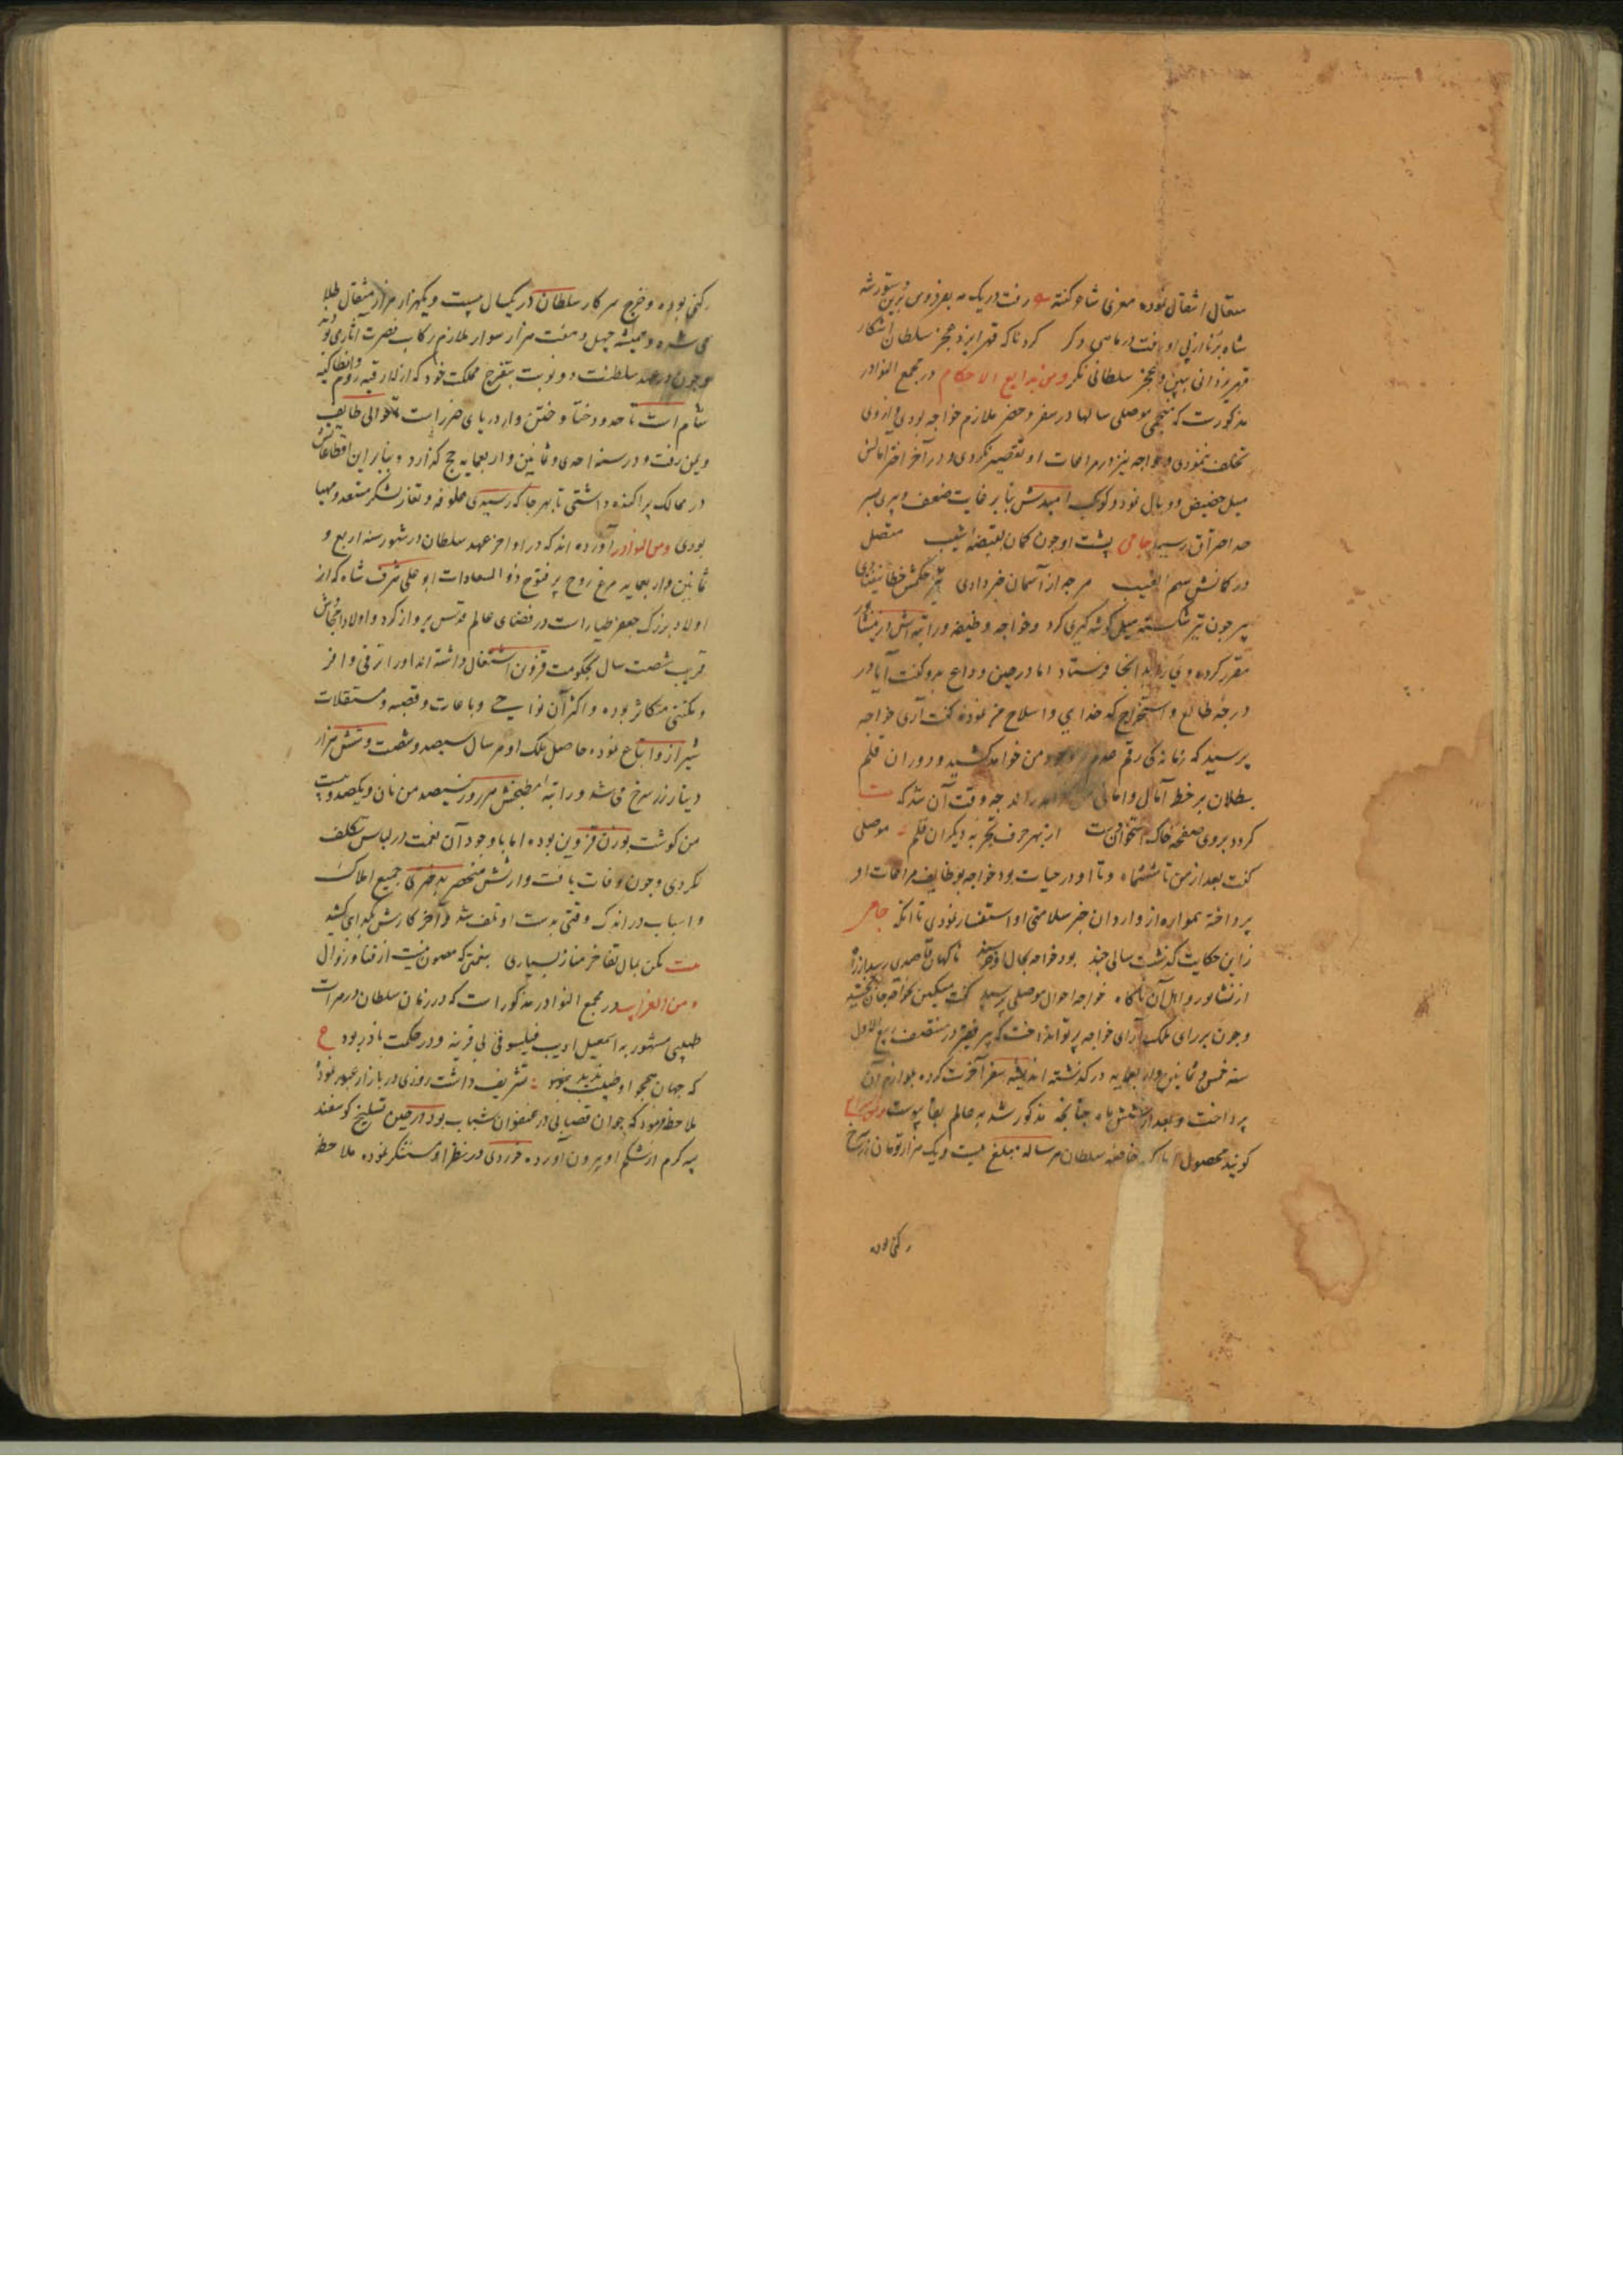 متعال انتقال نموده معزی شاعر گفته رفت در یک مه بفردوس برین دستور
شاه برنا از پی او رفت در ماهی دگر کرد ناگه قهر ایزد عجز سلطان آشکار
قهر یزدانی ببین و عجز سلطانی نگر ومن بدایع الاحکام در مجمع النوادر
مذکورست که منجمی موصلی سالها در سفر و حضر ملازم خواجه بودی و از وی
تخلف ننمودی و خواجه نیز در مراعات او تقصیر نکردی و در آخر اختر امالش
میل حضیض و وبال نمود و کوکب امیدش بنابر غایت ضعف و پیری بسر
حد احتراق رسید جامی پشت او چون کمان بقبضه شیب متصل
در کمانش سهم الغیب هرچه از آسمان خبر دادی تیر حکمش خطا نیفتادی
پیر چون تیر شکسته میل گوشه گیری کرد و خواجه وظیفه و راتبه اش در نیشابور
مقرر کرده وی را بدانجا فرستاد اما در حین وداع بدو گفت آیا در
درجه طالع و استخراج کدخدایی و اسلاح من نموده گفت آری خواجه
پرسید که زمانه کی رقم عدم بر وجود من خواهد کشید و دوران قلم
بطلان بر خط آمال و امانی من خواهد راند چه وقت آن شد که بیت
گردد بروی صفحه خاک استخوان من بست از بهر حرف تجربه دیگران قلم موصلی
گفت بعد از من تا ششماه و تا او در حیات بود خواجه بوظایف مراعات او
پرداخته همواره از واردان خبر سلامتی او استفسار نمودی تا آنکه جامی
زاین حکایت گذشت سالی چند بود خواجه بحال خود خرسند ناگهان قاصدی رسید از راه
از نشابور و اهل آن آگاه خواجه احوال موصلی پرسید گفت مسکین بخواجه جان بخشید
وچون بر رای ملک آرای خواجه پرتو انداخت که پیر فقیر در منتصف ربیع الاول
سنه خمس و ثمانین واربعمایه در گذشته اندیشه سفر آخرت کرده بلوازم آن
پرداخت و بعد از شش ماه چنانچه مذکور شد به عالم بقا پیوست
گویند محصول املاک خاصه سلطان هر ساله مبلغ بیست ویک هزار تومان زر سرخ
رکنی بوده
رکنی بوده و خرج سرکار سلطان در یکسال بیست ویکهزار هزار مثقال طلا
می شده و همیشه چهل و هفت هزار سوار ملازم رکاب نصرت آثاری بود
وچون در عهد سلطنت دو نوبت بتفرج مملکت خود که از لاذقیه روم وانطاکیه
شام است تا حدود ختا و ختن و از دریای خزر است تا حوالی طایف
ویمن رفت و در سنه احدی و ثمانین واربعمایه حج گذارد وبنابراین اقطاعاتش
در ممالک پراکنده داشتی تا بهر جا که رسیدی علوفه و تغار لشکر مستعد و مهیا
بودی ومن النوادر آورده اند که در اواخر عهد سلطان در شهور سنه اربع و
ثمانین واربعمایه مرغ روح پر فتوح ذوالسعادات ابو علی شرف شاه که از
اولاد بزرگ جعفر طیار است در فضای عالم قدس پرواز کرد و اولاد امجادش
قریب شصت سال بحکومت قزوین اشتغال داشته اند او را ثروتی وافر
و مکنتی متکاثر بوده و اکثر آن نواحی وباغات و قصبه و مستقلات
شیراز و اتباع نموده حاصل ملک او هر سال سیصد وشصت وشش هزار
دینار زر سرخ می شد و راتبه مطبخش هر روز سیصد من نان ویکصد وبیست
من گوشت بوزن قزوین بوده اما با وجود آن نعمت در لباس تکلف
نکردی وچون وفات یافت وارثش منحصر بدختری جمیع املاک
واسباب در اندک وقتی بدست او تلف شد وآخر کارش بگدایی کشید
بیت مکن بمال تفاخر مناز بسیاری بنعمتی که مصون نیست از فنا و زوال
ومن الغرایب در مجمع النوادر مذکور است که در زمان سلطان در هرات
طبیبی مشهور به اسمعیل ادیب فیلسوفی بی قرینه ودر حکمت نادر بود ع
که جهان همچو او طبیب ندید بخود تشریف داشت روزی در بازار عبور نموده
ملاحظه فرمود که جوان قصابی در عنفوان شباب بود در حین تسلیخ گوسفند
پیه گرم از شکم او بیرون آورده خوردی در نظر او مستنکر نموده ملاحظه